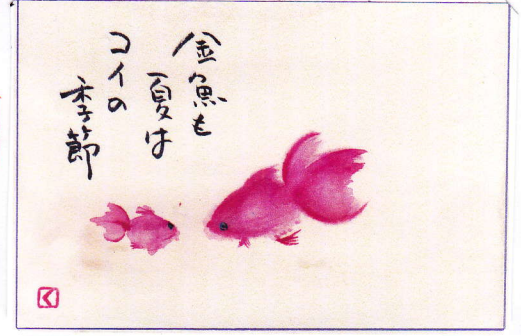 金魚も
夏は
コイの
季節